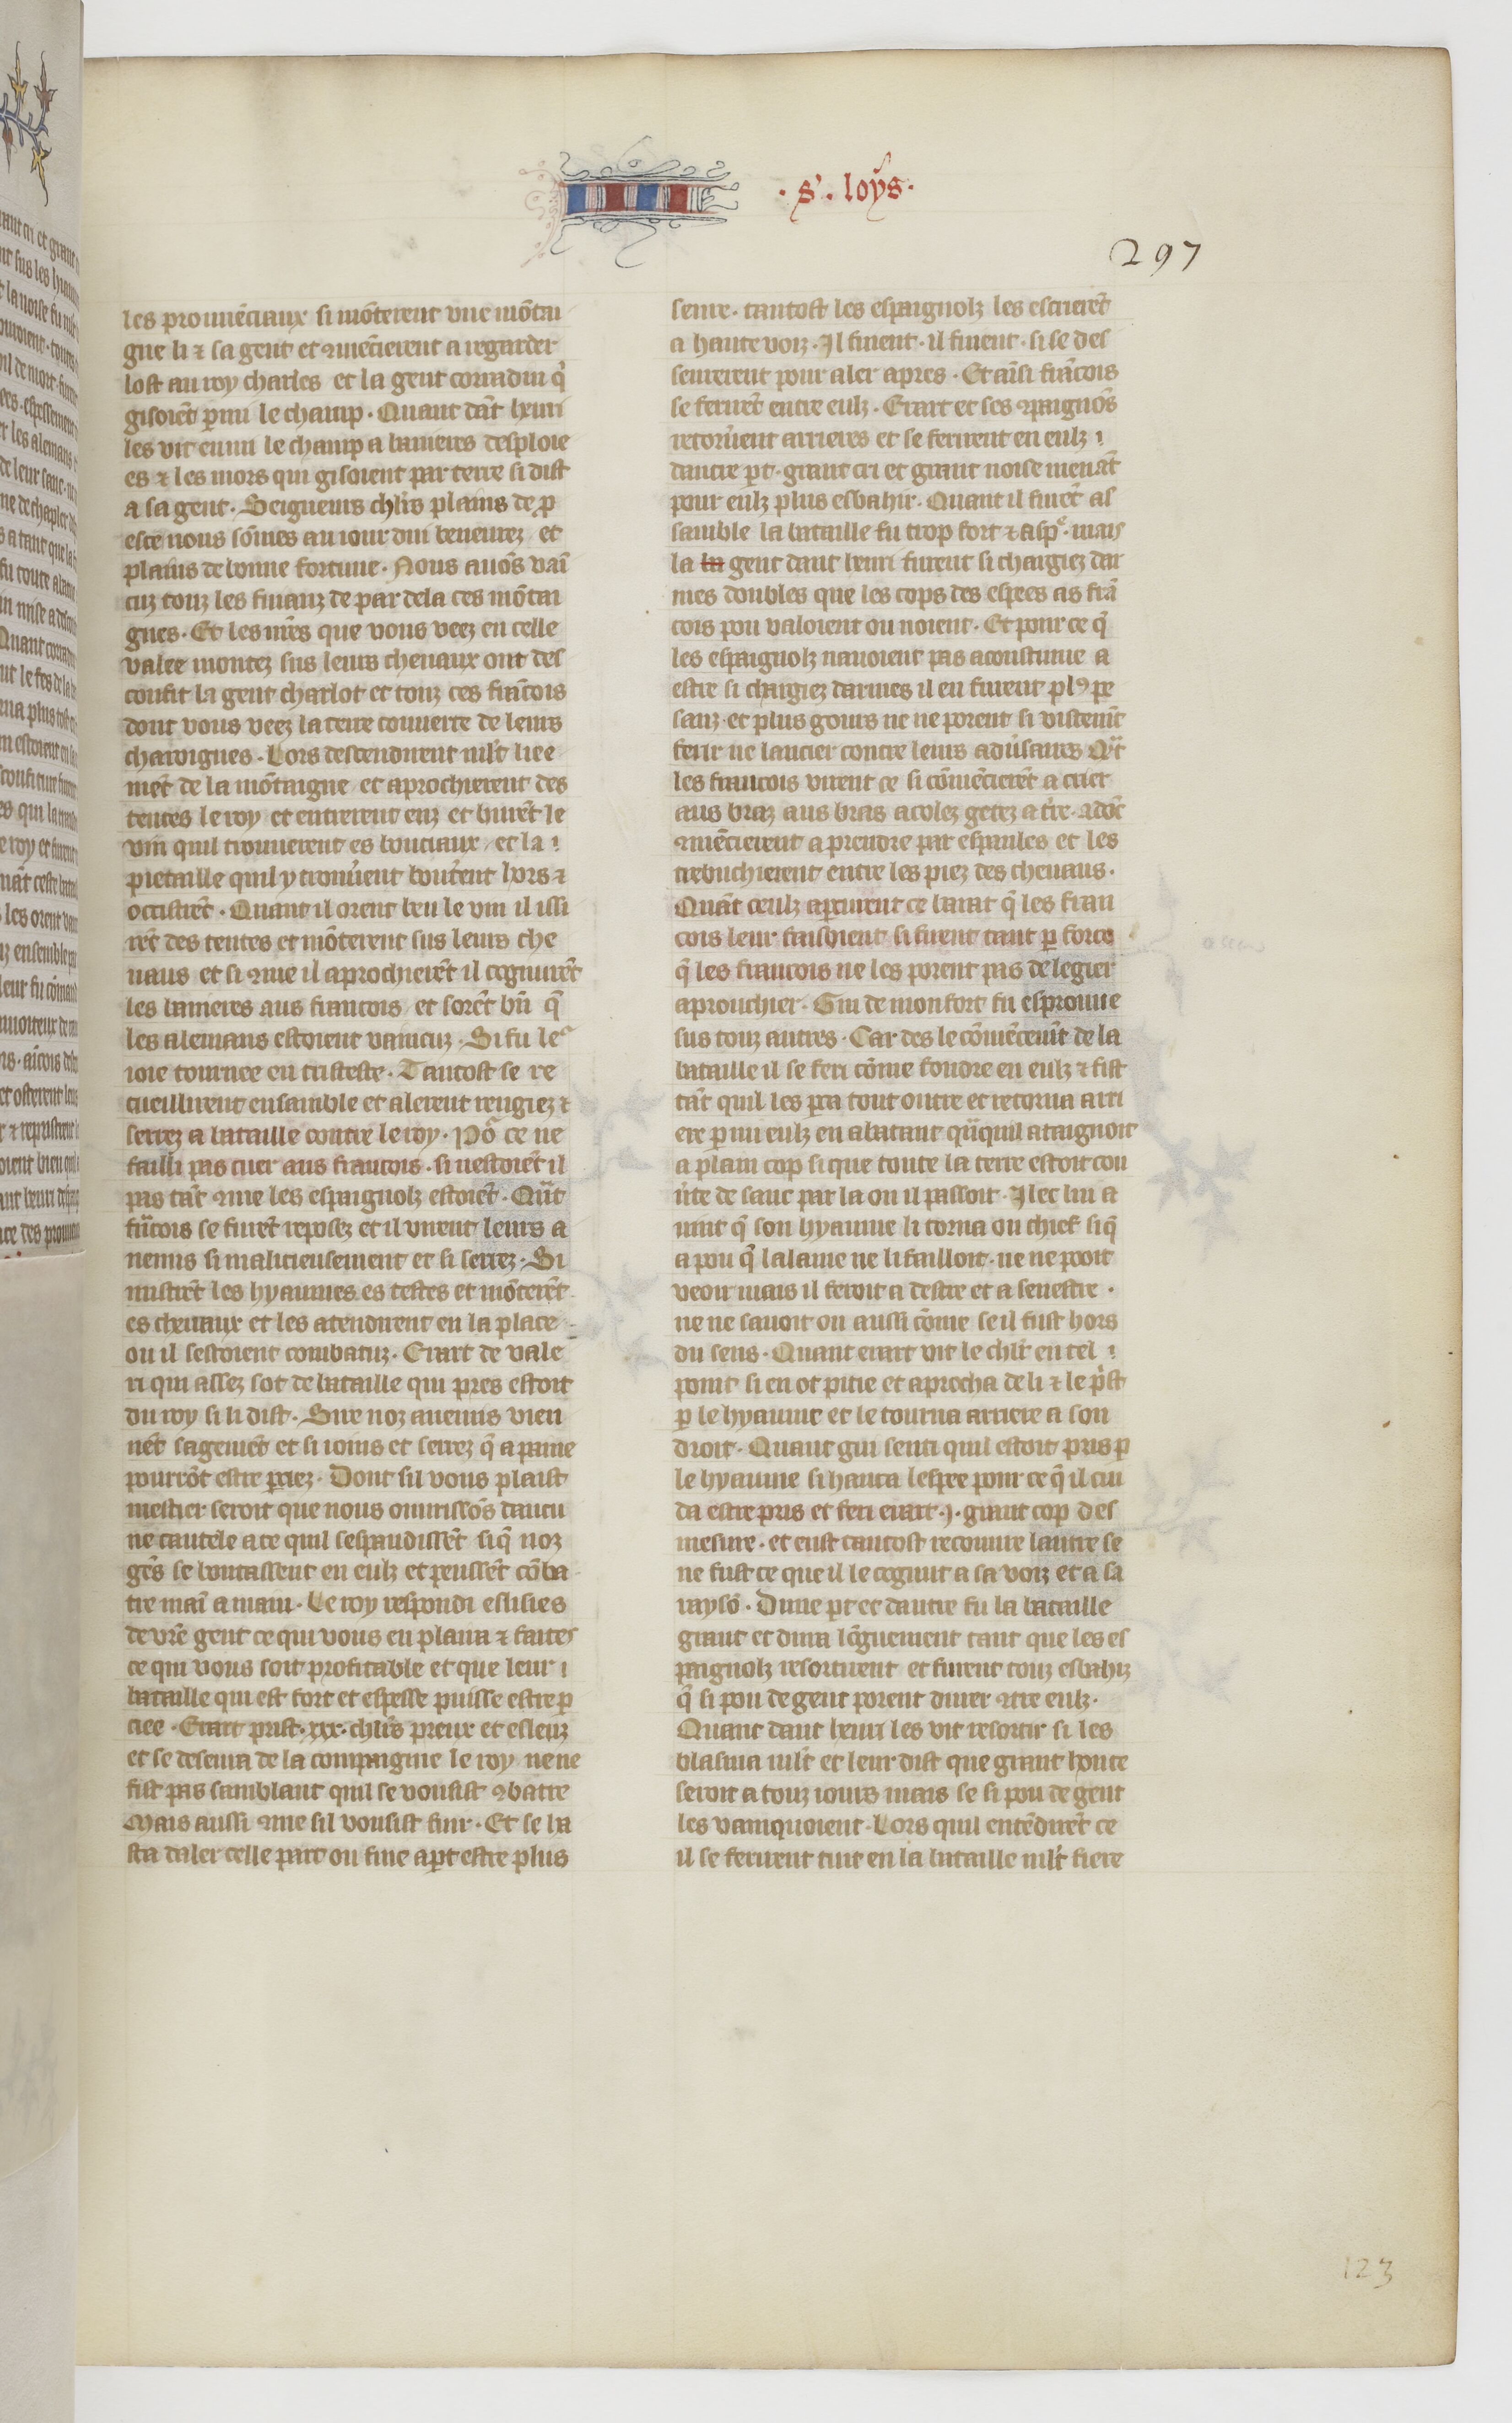 .s'. loys.
297
les prouuēciaux si mōterent vne mōtai
gne li ⁊ sa gent et ꝯmēcierent a regarder
lost au roy charles et la gent corradin q̄
gisoiēt ꝑmi le champ. Quant dāt henri
les vit enmi le champ a banieres desploie
es ⁊ les mors qui gisoient par terre si dist
a sa gent. Seigneurs chl̄rs plains de ꝓ
esce nous sōmes au iour dui beneurez et
plains de bonne fortune. Nous auōs vaī
cuz touz les fuianz de par dela ces mōtai
gnes. Et les nr̄es que vous veez en celle
valee montez sus leurs cheuaux ont des
confit la gent charlot et touz ces frācois
dont vous veez la terre couuerte de leurs
charoignes. Lors descendirent ml̄t liee
mēt de la mōtaigne et aprochierent des
tentes le roy et entrerent enz et burēt le
vin quil trouuerent es bouciaux et la
pietaille quil y trouu̇ent bout̓ent hors ⁊
occistrēt. Quant il orent beu le vin il issi
rēt des tentes et mōterent sus leurs che
uaus et si ꝯme il aprochierēt il cognurēt
les banieres aus francois et sorēt bn̄ q̄
les alemans estoient vaincuz. Si fu leᵉ
ioie tournee en tristeste. Tantost se re
cueillirent ensamble et alerent rengiez ⁊
serrez a bataille contre le roy. Pō ce ne
failli pas cuer aus francois. si nestoiēt il
pas tāt ꝯme les espaignolz estoiēt. Qn̄t
frācois se furēt reposez et il virent leurs a
nemis si malicieusement et si serrez. Si
mistrēt les hyaumes es testes et mōterēt
es cheuaux et les atendirent en la place
ou il sestoient combatuz. Erart de vale
ri qui assez sot de bataille qui pres estoit
du roy si li dist. Sire noz anemis vien
nēt sagemēt et si ioins et serrez q̄ a paine
pourrōt estre ꝑciez. Dont sil vous plaist
mestier seroit que nous ouurissōs daucu
ne cautele a ce quil sespandissēt si q̄ noz
gēs se boutassent en eulz et peussēt cōba
tre maī a main. Le roy respondi eslisies
de vr̄e gent ce qui vous en plaira ⁊ faites
ce qui vous soit profitable et que leur
bataille qui est fort et espesse puisse estre ꝑ
ciee. Erart prist .xxx. chl̄rs preux et esleuz
et se desseura de la compaignie le roy ne ne
fist pas samblant quil se vousist ꝯbatre
Mais aussi ꝯme sil vousist fuir. Et se ha
sta daler celle part ou fuie aꝑt estre plus
seure. tantost les espaignolz les escrierēt
a haute voiz. Il fuient. il fuient. si se des
seurerent pour aler apres. Et aīsi frācois
se ferirēt entre eulz. Erart et ses ꝯpaignōs
retorn̓ent arrieres et se ferirent en eulz
dautre ꝑt. grant cri et grant noise menāt
pour eulz plus esbahir. Quant il furēt as
samble la bataille fu trop fort ⁊ aspᵉ. mais
la la gent dant henri furent si chargiez dar
mes doubles que les cops des espees as frā
cois pou valoient ou noient. Et pour ce q̄
les espaignolz nauoient pas acoustume a
estre si chargiez darmes il en furent plꝰ pe
sanz. et plus gours ne ne porent si vistemēt
ferir ne lancier contre leurs adu̓saires Qn̄t
les francois virent ce si cōmēcierēt a crier
aus braz aus bras acolez getez a t̓re. adōc
ꝯmēcierent a prendre par espaules et les
trebuchierent entre les piez des cheuaus.
Quāt ceulz aꝑcurent ce barat q̄ les fran
cois leur faisoient si fuient tant ꝑ force
q̄ les francois ne les porent pas de legier
aprouchier. Gui de monfort fu esprouue
sus touz autres. Car des le cōmēcemēt de la
bataille il se feri cōme foudre en eulz ⁊ fist
tāt quil les ꝑca tout outre et retorna arri
ere ꝑmi eulz en abatant qn̄quil ataignoit
a plain cop si que toute la terre estoit cou
u̓te de sanc par la ou il passoit. Ilec li a
uint q̄ son hyaume li torna ou chief si q̄
a pou q̄ lalaine ne li failloit. ne ne pooit
veoir mais il feroit a destre et a senestre.
ne ne sauoit ou aussi cōme se il fust hors
du sens. Quant erart vit le chl̄r en tel
point si en ot pitie et aprocha de li ⁊ le p̓st
ꝑ le hyaume et le tourna arriere a son
droit. Quant gui senti quil estoit pris ꝑ
le hyaume si hauca lespee pour ce q̄ il cui
da estre pris et feri erart .j. grant cop des
mesure. et eust tantost recouure lautre se
ne fust ce que il le cognut a sa voiz et a sa
raysō. Dune ꝑt et dautre fu la bataille
grant et dura lōguement tant que les es
paignolz resortirent et furent touz esbahiz
q̄ si pou de gent porent durer ꝯtre eulz.
Quant dant henri les vit resortir si les
blasma ml̄t et leur dist que grant honte
seroit a touz iours mais se si pou de gent
les vainquoient. Lors quil entēdirēt ce
il se ferirent tuit en la bataille ml̄t fiere
123